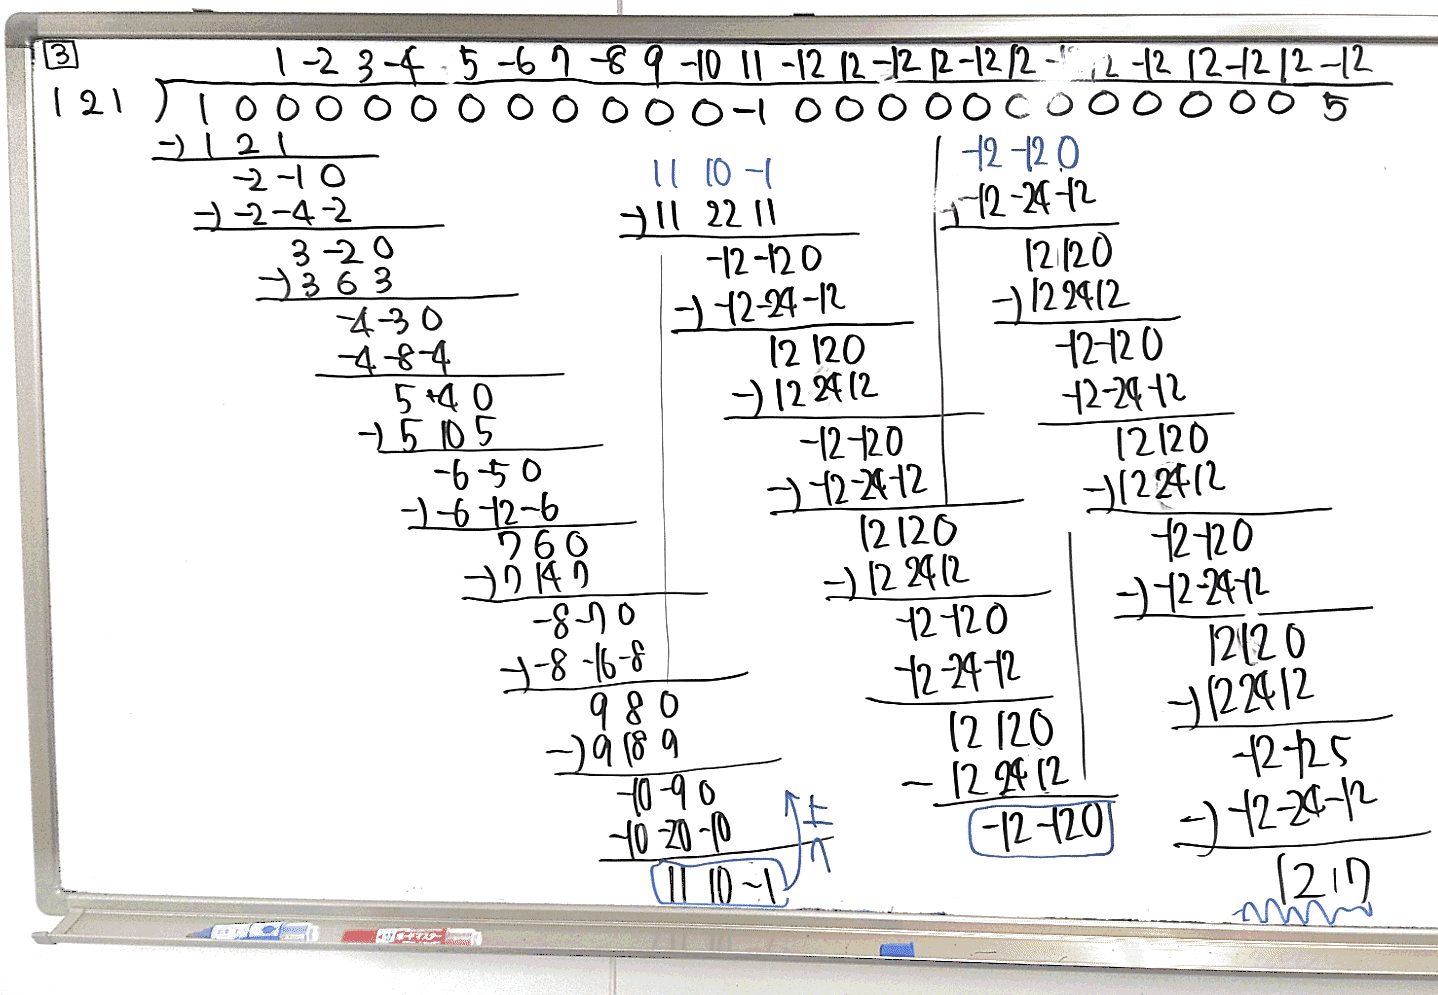 3
1 -2 3 -4 5 -6 7 -8 9 -10 11 -12 12 -12 12 -12 12 12 -12 12 -12 12 -12
121 ) 1 0 0 0 0 0 0 0 0 0 0 0 -1 0 0 0 0 0 0 0 0 0 0 0 5
-) 1 2 1
-2 -1 0
-) -2 -4 -2
3 -2 0
-) 3 6 3
-4 -3 0
-4 -8 -4
5 +4 0
-) 5 10 5
-6 -5 0
-) -6 -12 -6
7 6 0
-) 7 14 7
-8 -7 0
-) -8 -16 -8
9 8 0
-) 9 18 9
-10 -9 0
-10 -20 -10
11 10 -1
上へ
11 10 -1
-) 11 22 11
-12 -12 0
-) -12 -24 -12
12 12 0
-) 12 24 12
-12 -12 0
-) -12 -24 -12
12 12 0
-) 12 24 12
-12 -12 0
-12 -24 -12
12 12 0
- 12 24 12
-12 -12 0
-12 -12 0
-) -12 -24 -12
12 12 0
-) 12 24 12
-12 -12 0
-12 -24 -12
12 12 0
-) 12 24 12
-12 -12 0
-) -12 -24 -12
12 12 0
-) 12 24 12
-12 -12 5
-) -12 -24 -12
12 17
ボードマスター